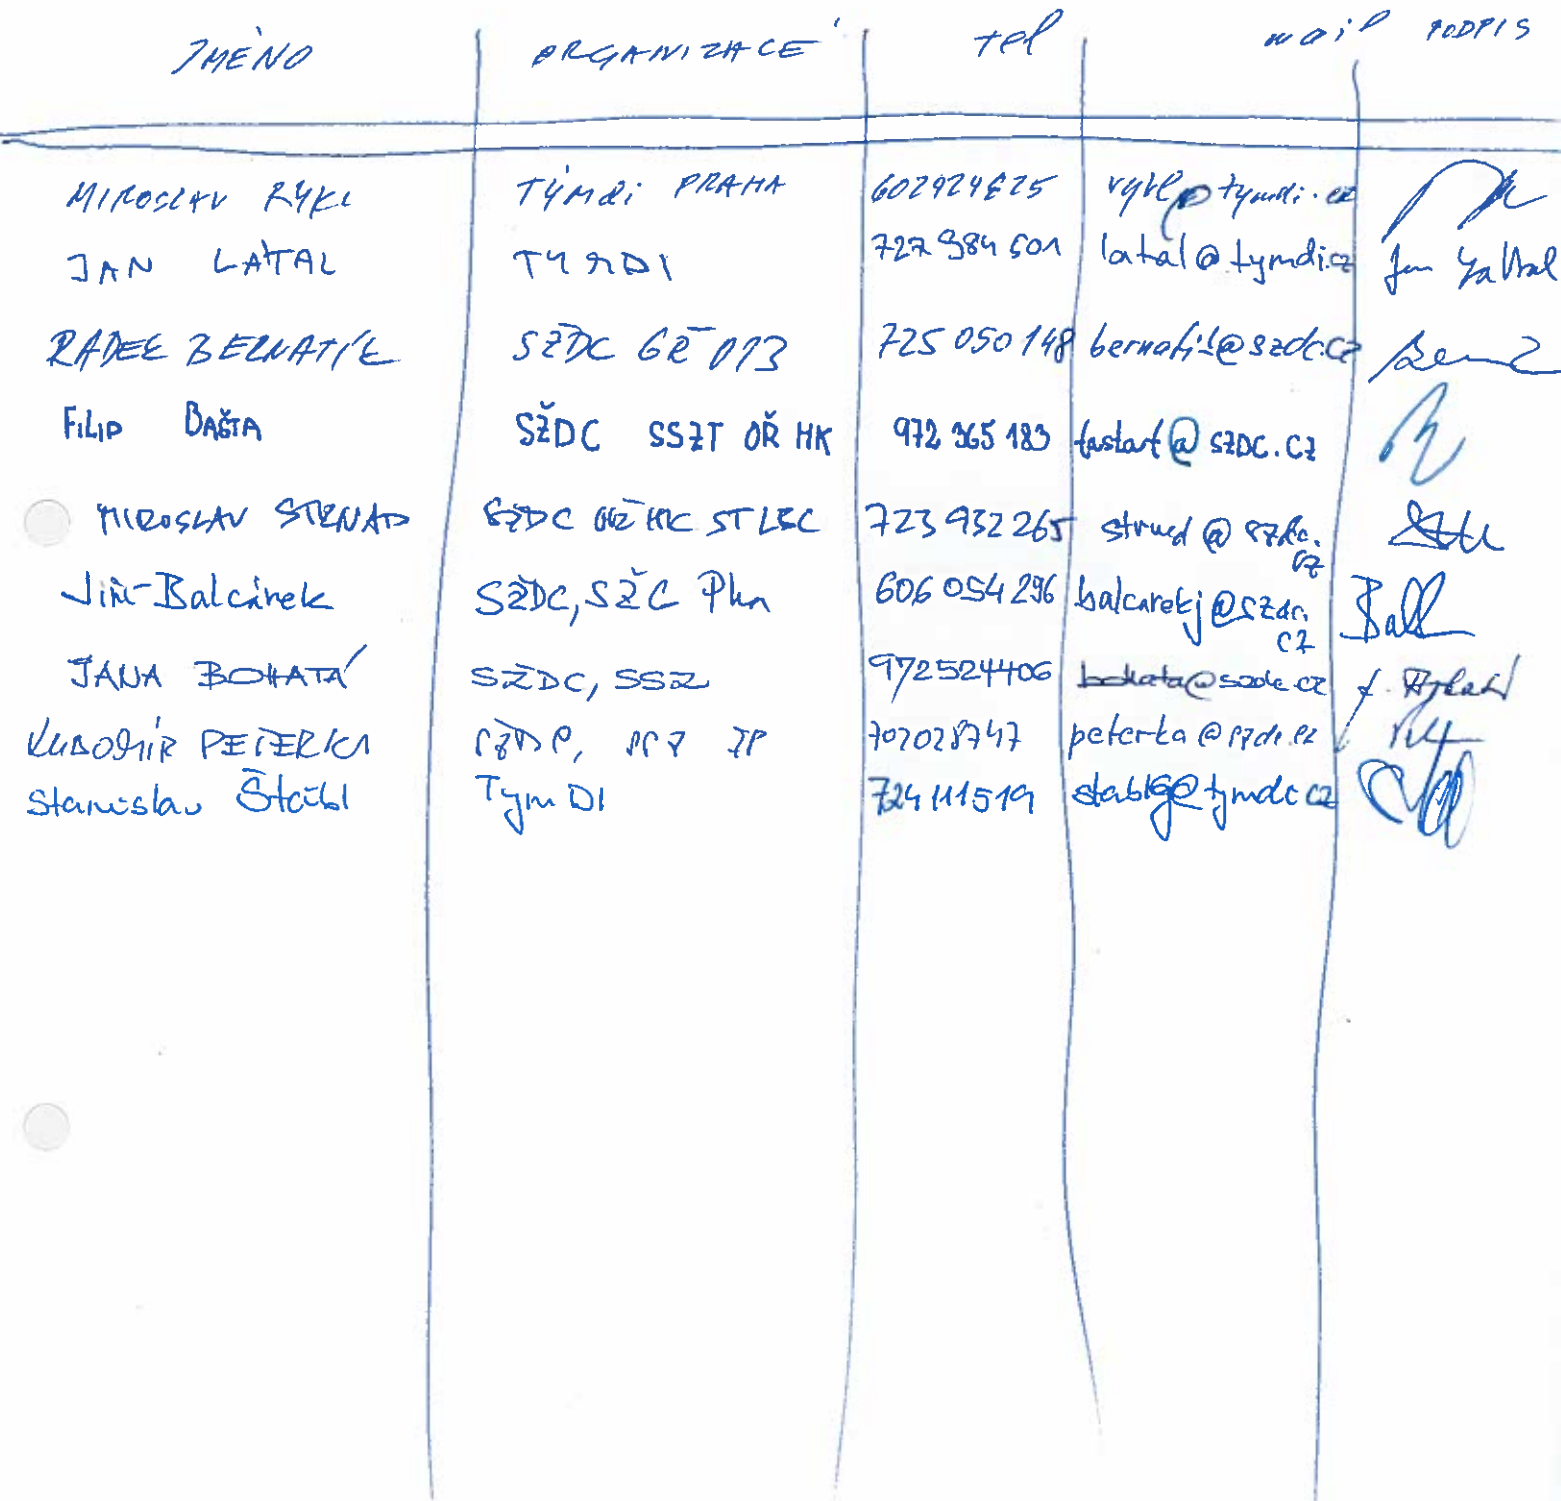 JMÉNO ORGANIZACE tel mail PODPIS
MIROSLAV RÝKL TÝMDI PRAHA rykl@tymdi.cz
JAN LÁTAL TYMDI 727 984 501 latal@tymdi.cz Jan Látal
RADEK BERNATÍK SŽDC GŘ O13 725 050 148 bernatik@szdc.cz
FILIP BAŠTA SŽDC SSZT OŘ HK 972 365 183 bastaf@SZDC.CZ
MIROSLAV STRNAD SŽDC OŘ HK ST LBC 723 932 265 strnad@szdc.cz
Jiří Balcárek SŽDC, SŽG Pha 606 054 296 balcarekj@szdc.cz
JANA BOHATÁ SŽDC, SSZ 972524406 bohata@szdc.cz
LUBOMÍR PETERKA SŽDC, peterka@szdc.cz
Stanislav Štábl Tym DI 724111519